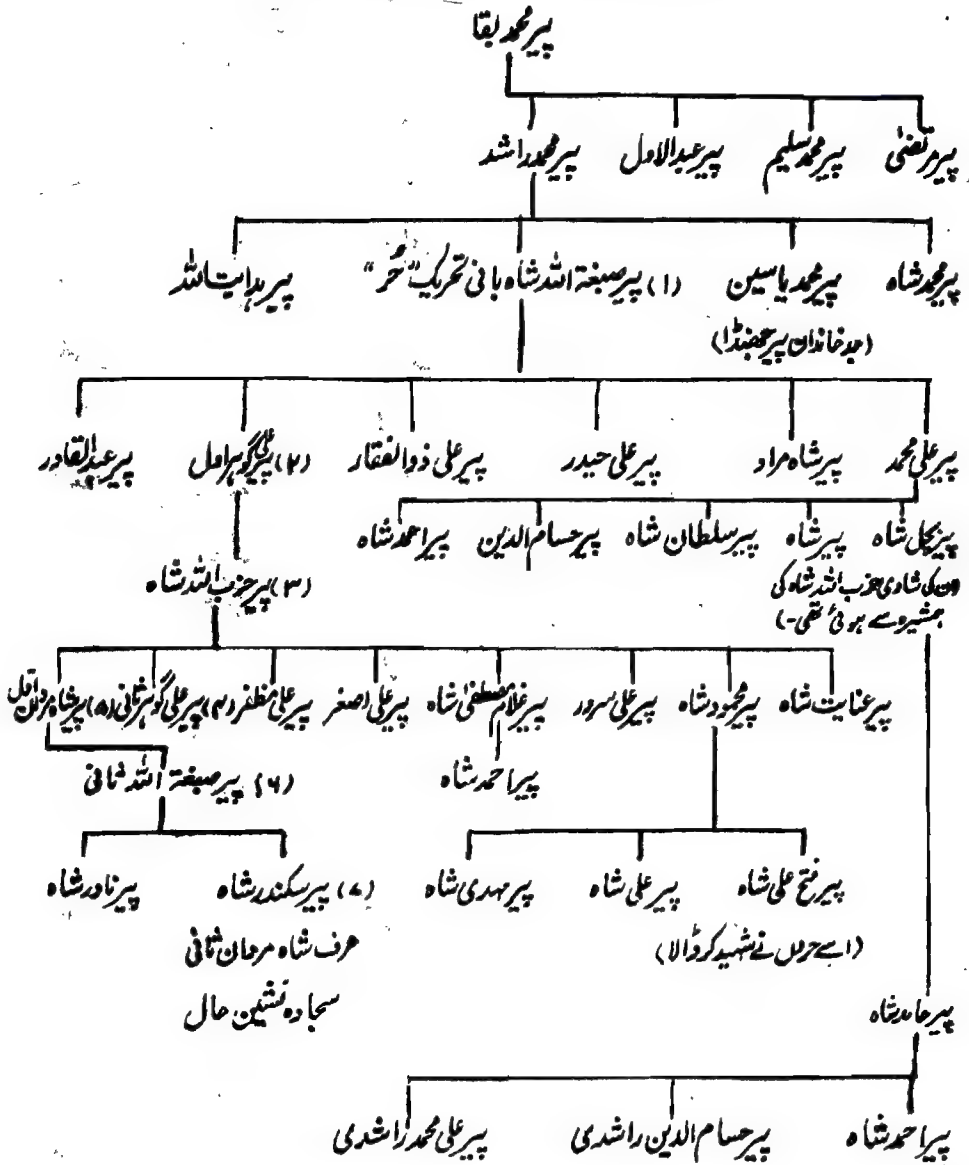 پیر محمد بقا
پیر مرتضیٰ پیر محمد سلیم پیر عبدالاول پیر محمد راشد
پیر محمد شاہ پیر محمد یاسین (۱) پیر صبغۃ اللہ شاہ بانی تحریک "حُر" پیر ہدایت اللہ
(جد خاندان پیر جھنڈا)
پیر علی محمد پیر شاہ مراد پیر علی حیدر پیر علی ذوالفقار (۲) پیر علی گوہر اول پیر عبدالقادر
پیر بچل شاہ پیر شاہ پیر سلطان شاہ پیر حسام الدین پیر احمد شاہ
(ان کی شادی حزب اللہ شاہ کی
ہمشیرہ سے ہوئی تھی۔)
(۳) پیر حزب اللہ شاہ
پیر عنایت شاہ پیر محمود شاہ پیر علی سرور پیر غلام مصطفیٰ شاہ پیر علی اصغر پیر علی مظفر (۴) پیر علی گوہر ثانی (۵) پیر شاہ مردان اول
پیر احمد شاہ
(۶) پیر صبغۃ اللہ ثانی
پیر فتح علی شاہ پیر علی شاہ پیر مہدی شاہ (۷) پیر سکندر شاہ پیر نادر شاہ
(اسے حروں نے شہید کر ڈالا)
عرف شاہ مردان ثانی
سجادہ نشین حال
پیر حامد شاہ
پیر احمد شاہ پیر حسام الدین راشدی پیر علی محمد راشدی